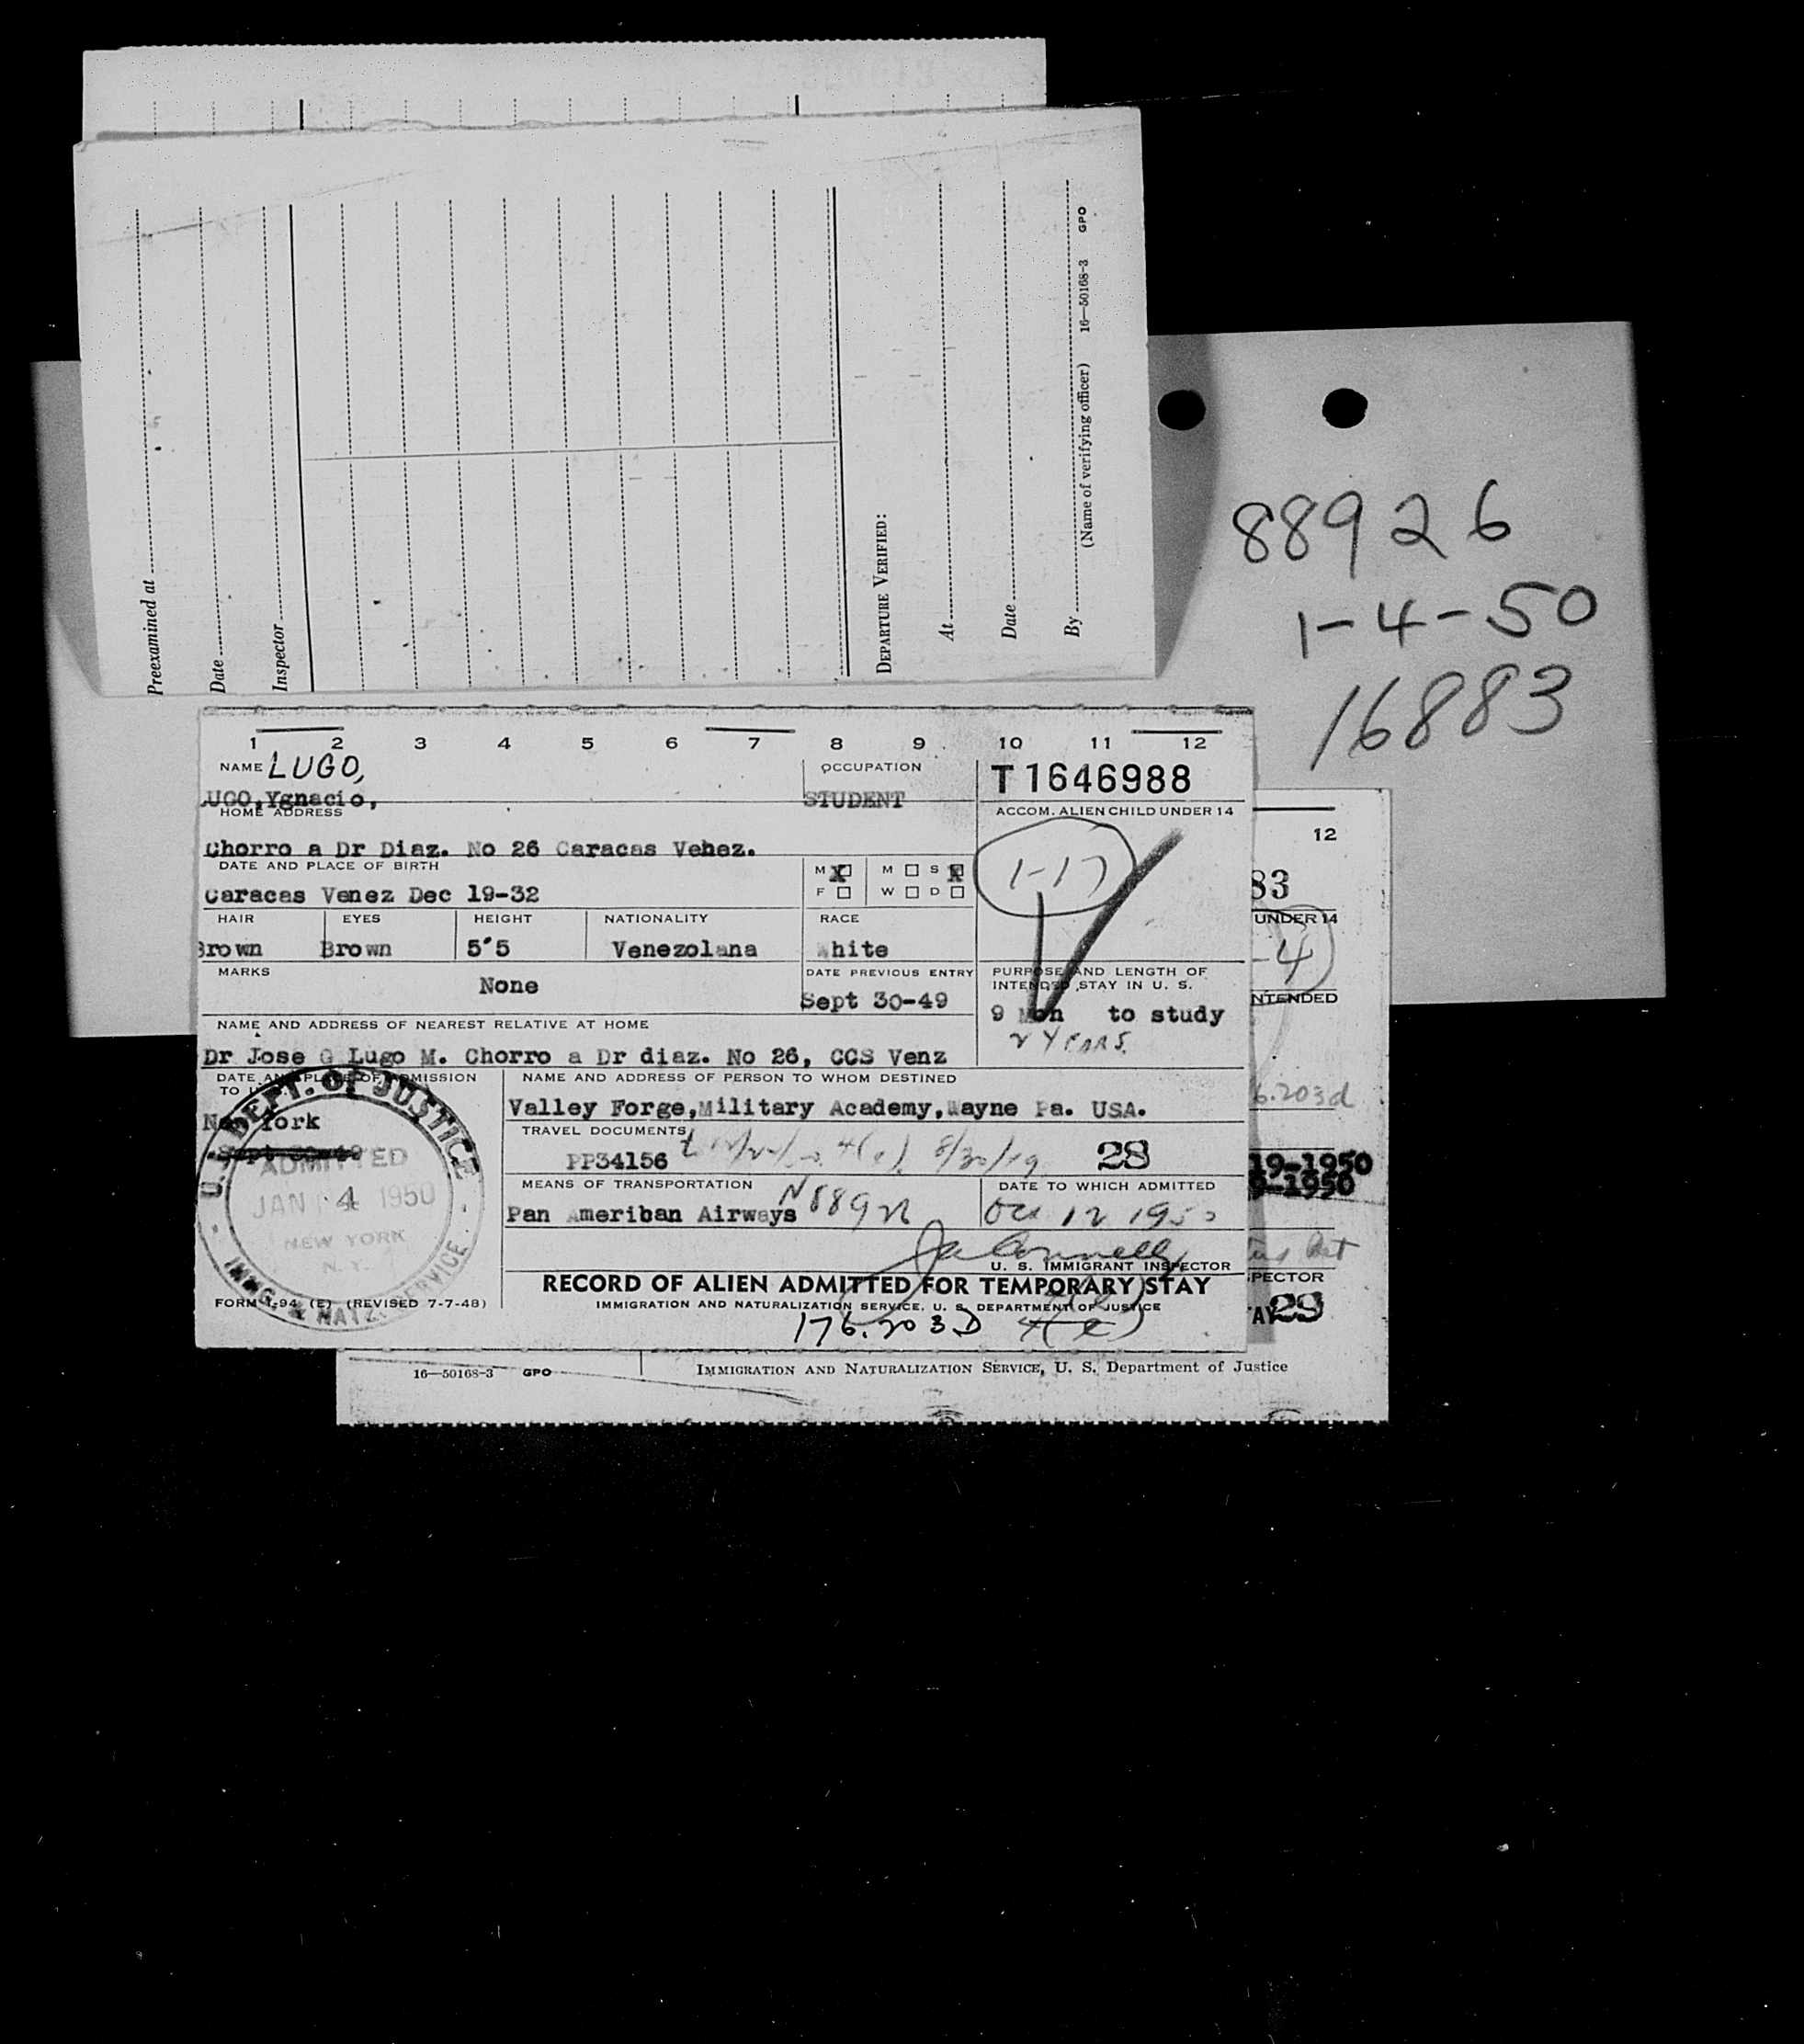 Preexamined at
Date
Inspector
DEPARTURE VERIFIED:
At
Date
By
(Name of verifying officer) 16—50168-3 GPO
88926
1-4-50
16883
1 2 3 4 5 6 7 8 9 10 11 12
NAME LUGO, OCCUPATION T1646988
UGO,Ygnacio, STUDENT
HOME ADDRESS ACCOM. ALIEN CHILD UNDER 14
Chorro a Dr Diaz. No 26 Caracas Venez.
DATE AND PLACE OF BIRTH M X M S X
F W D
1-17
Caracas Venez Dec 19-32
HAIR EYES HEIGHT NATIONALITY RACE
Brown Brown 5'5 Venezolana White
MARKS None DATE PREVIOUS ENTRY PURPOSE AND LENGTH OF
INTENDED STAY IN U. S.
Sept 30-49 9 Mon to study
2 YEARS.
NAME AND ADDRESS OF NEAREST RELATIVE AT HOME
Dr Jose G Lugo M. Chorro a Dr diaz. No 26, CCS Venz
DATE AND PLACE OF ADMISSION NAME AND ADDRESS OF PERSON TO WHOM DESTINED
TO U.
New York Valley Forge,Military Academy,Wayne Pa. USA.
Sept 30-49
TRAVEL DOCUMENTS
PP34156 4(e) 8/30/49 28
MEANS OF TRANSPORTATION DATE TO WHICH ADMITTED
Pan Ameriban Airways N88926 Oct 12 1950
U. S. IMMIGRANT INSPECTOR
RECORD OF ALIEN ADMITTED FOR TEMPORARY STAY
FORM I-94 (E) (REVISED 7-7-48) IMMIGRATION AND NATURALIZATION SERVICE, U. S. DEPARTMENT OF JUSTICE
176.203D 4(e)
U. S. DEPT. OF JUSTICE
ADMITTED
JAN 4 1950
NEW YORK
N. Y.
IMMG. & NATZ. SERVICE
12
83
UNDER 14
-4
NTENDED
6.203d
19-1950
9-1950
PECTOR
AY 29
16—50168-3 GPO IMMIGRATION AND NATURALIZATION SERVICE, U. S. Department of Justice